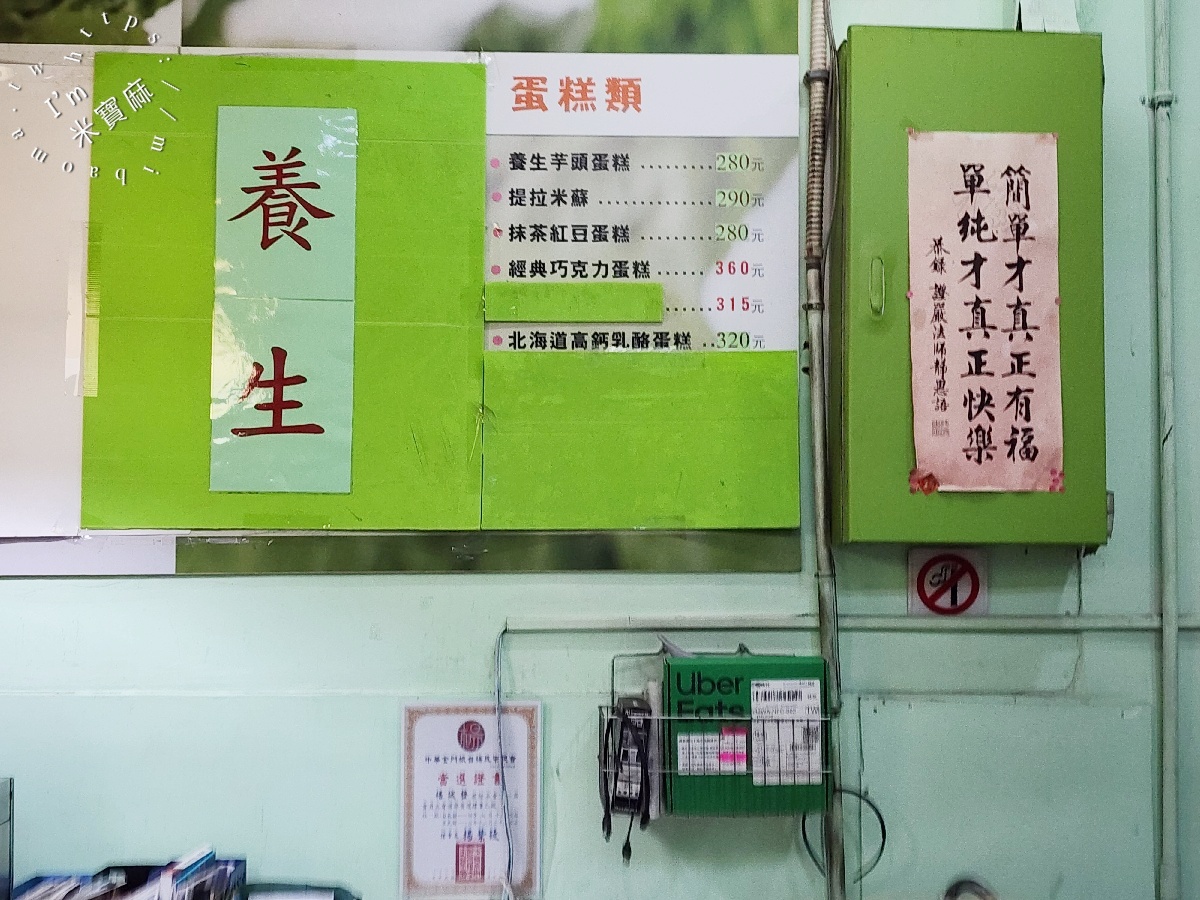 I'm
米寶麻
養生
蛋糕類
養生芋頭蛋糕 ........ 280元
提拉米蘇 ............ 290元
抹茶紅豆蛋糕 ........ 280元
經典巧克力蛋糕 ...... 360元
...... 315元
北海道高鈣乳酪蛋糕 .. 320元
簡單才真正有福
單純才真正快樂
恭錄 證嚴法師靜思語
Uber
Eats
當選證書